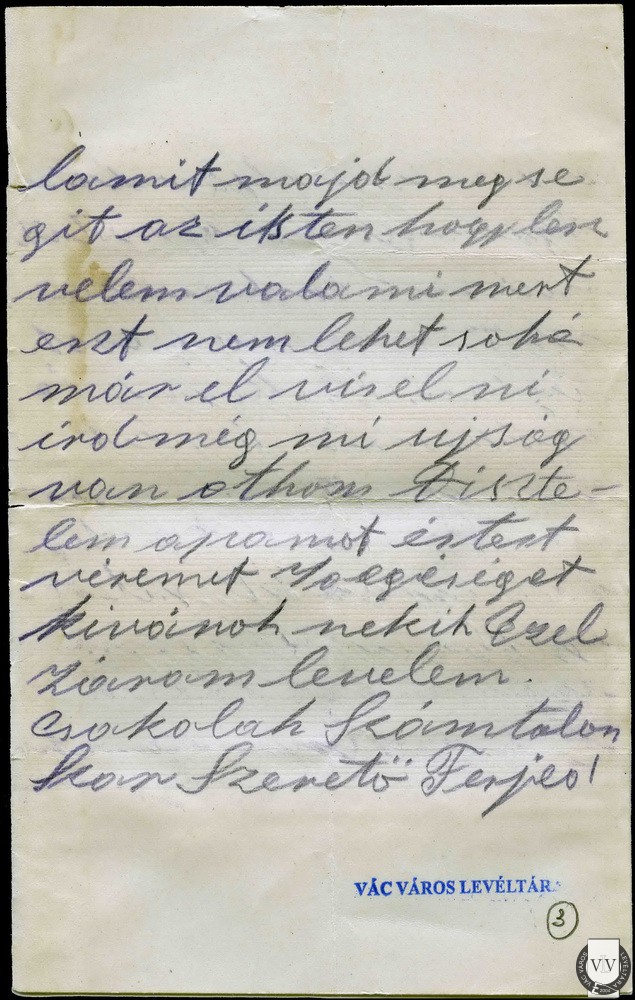 lamit majd megse
git az isten hogy lesz
velem valami mert
eszt nem lehet soha
már el viselni
írd még mi ujság
van othom Tiszte-
lem apamot éstest
véremet Jo egéséget
kivánok nekik Ezel
Zárom levelem.
Csokolak Számtalon
Skor Szerető Ferjed!
VÁC VÁROS LEVÉLTÁRA
3
VÁC VÁROS LEVÉLTÁRA